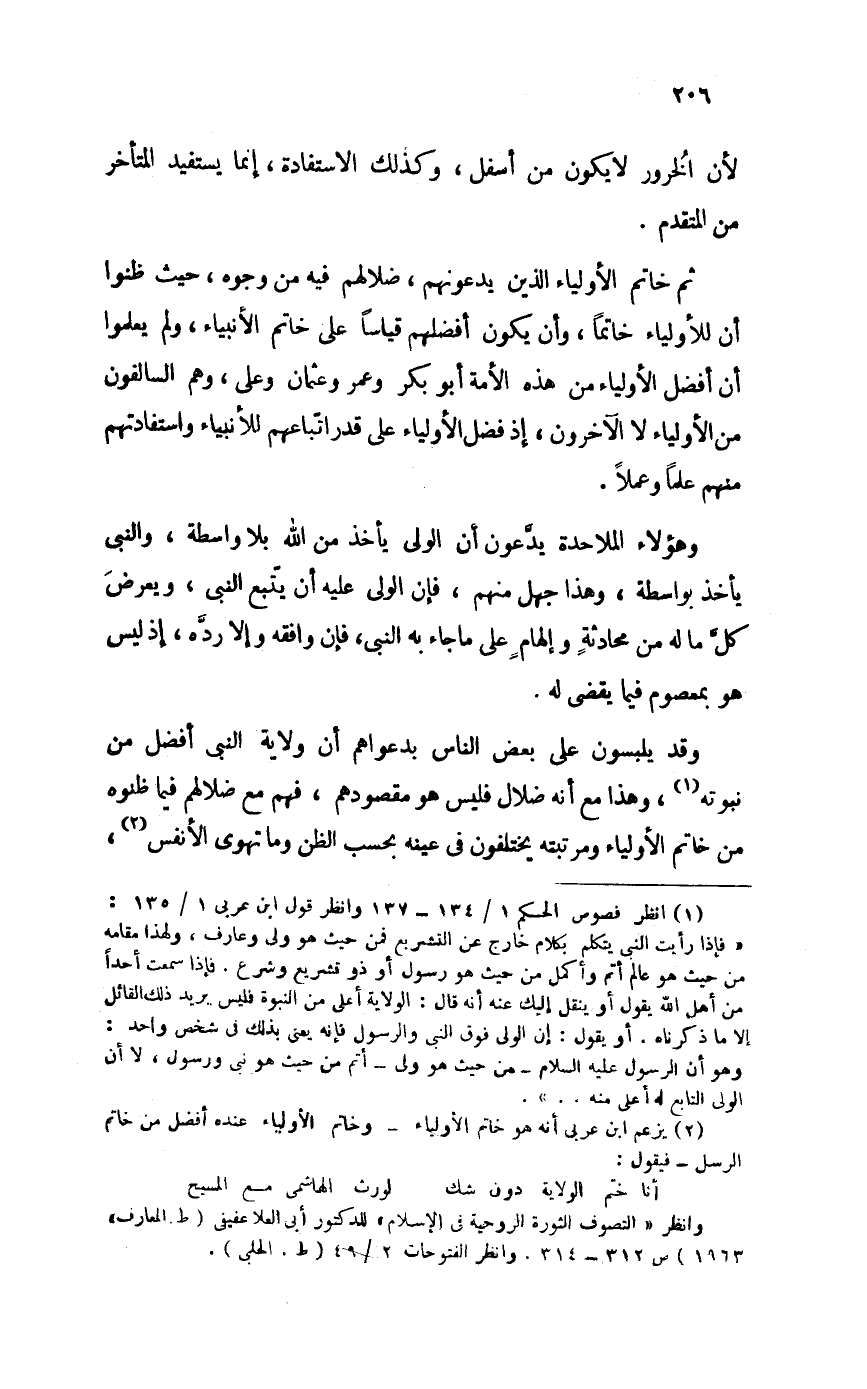 ٢٠٦
لأن الخرور لايكون من أسفل ، وكذلك الاستفادة ، إنما يستفيد المتأخر
من المتقدم .
ثم خاتم الأولياء الذين يدعونهم ، ضلالهم فيه من وجوه ، حيث ظنوا
أن للأولياء خاتماً ، وأن يكون أفضلهم قياساً على خاتم الأنبياء ، ولم يعلموا
أن أفضل الأولياء من هذه الأمة أبو بكر وعمر وعثمان وعلى ، وهم السالفون
من الأولياء لا الآخرون ، إذ فضل الأولياء على قدر اتّباعهم للأنبياء واستفادتهم
منهم علماً وعملاً .
وهؤلاء الملاحدة يدَّعون أن الولى يأخذ من الله بلا واسطة ، والنبى
يأخذ بواسطة ، وهذا جهل منهم ، فإن الولى عليه أن يتّبع النبى ، ويعرضَ
كلَّ ما له من محادثةٍ وإلهامٍ على ماجاء به النبى، فإن وافقه وإلا ردَّه ، إذ ليس
هو بمعصوم فيما يقضى له .
وقد يلبسون على بعض الناس بدعواهم أن ولاية النبى أفضل من
نبوته(١) ، وهذا مع أنه ضلال فليس هو مقصودهم ، فهم مع ضلالهم فيما ظنوه
من خاتم الأولياء ومرتبته يختلفون فى عينه بحسب الظن وما تهوى الأنفس(٢) ،
(١) انظر فصوص الحكم ١ / ١٣٤ ــ ١٣٧ وانظر قول ابن عربى ١ / ١٣٥ :
« فإذا رأيت النبى يتكلم بكلام خارج عن التشريع فمن حيث هو ولى وعارف ، ولهذا مقامه
من حيث هو عالم أتم وأكمل من حيث هو رسول أو ذو تشريع وشرع . فإذا سمعت أحداً
من أهل الله يقول أو ينقل إليك عنه أنه قال : الولاية أعلى من النبوة فليس يريد ذلك القائل
إلا ما ذكرناه . أو يقول : إن الولى فوق النبى والرسول فإنه يعنى بذلك فى شخص واحد :
وهو أن الرسول عليه السلام ــ من حيث هو ولى ــ أتم من حيث هو نبى ورسول ، لا أن
الولى التابع له أعلى منه . . » .
(٢) يزعم ابن عربى أنه هو خاتم الأولياء ــ وخاتم الأولياء عنده أفضل من خاتم
الرسل ــ فيقول :
أنا ختم الولاية دون شك لورث الهاشمى مع المسيح
وانظر « التصوف الثورة الروحية فى الإسلام » للدكتور أبى العلا عفيفى ( ط . المعارف،
١٩٦٣ ) ص ٣١٢ ــ ٣١٤ . وانظر الفتوحات ٢ / ٤٩ ( ط . الحلبى ) .